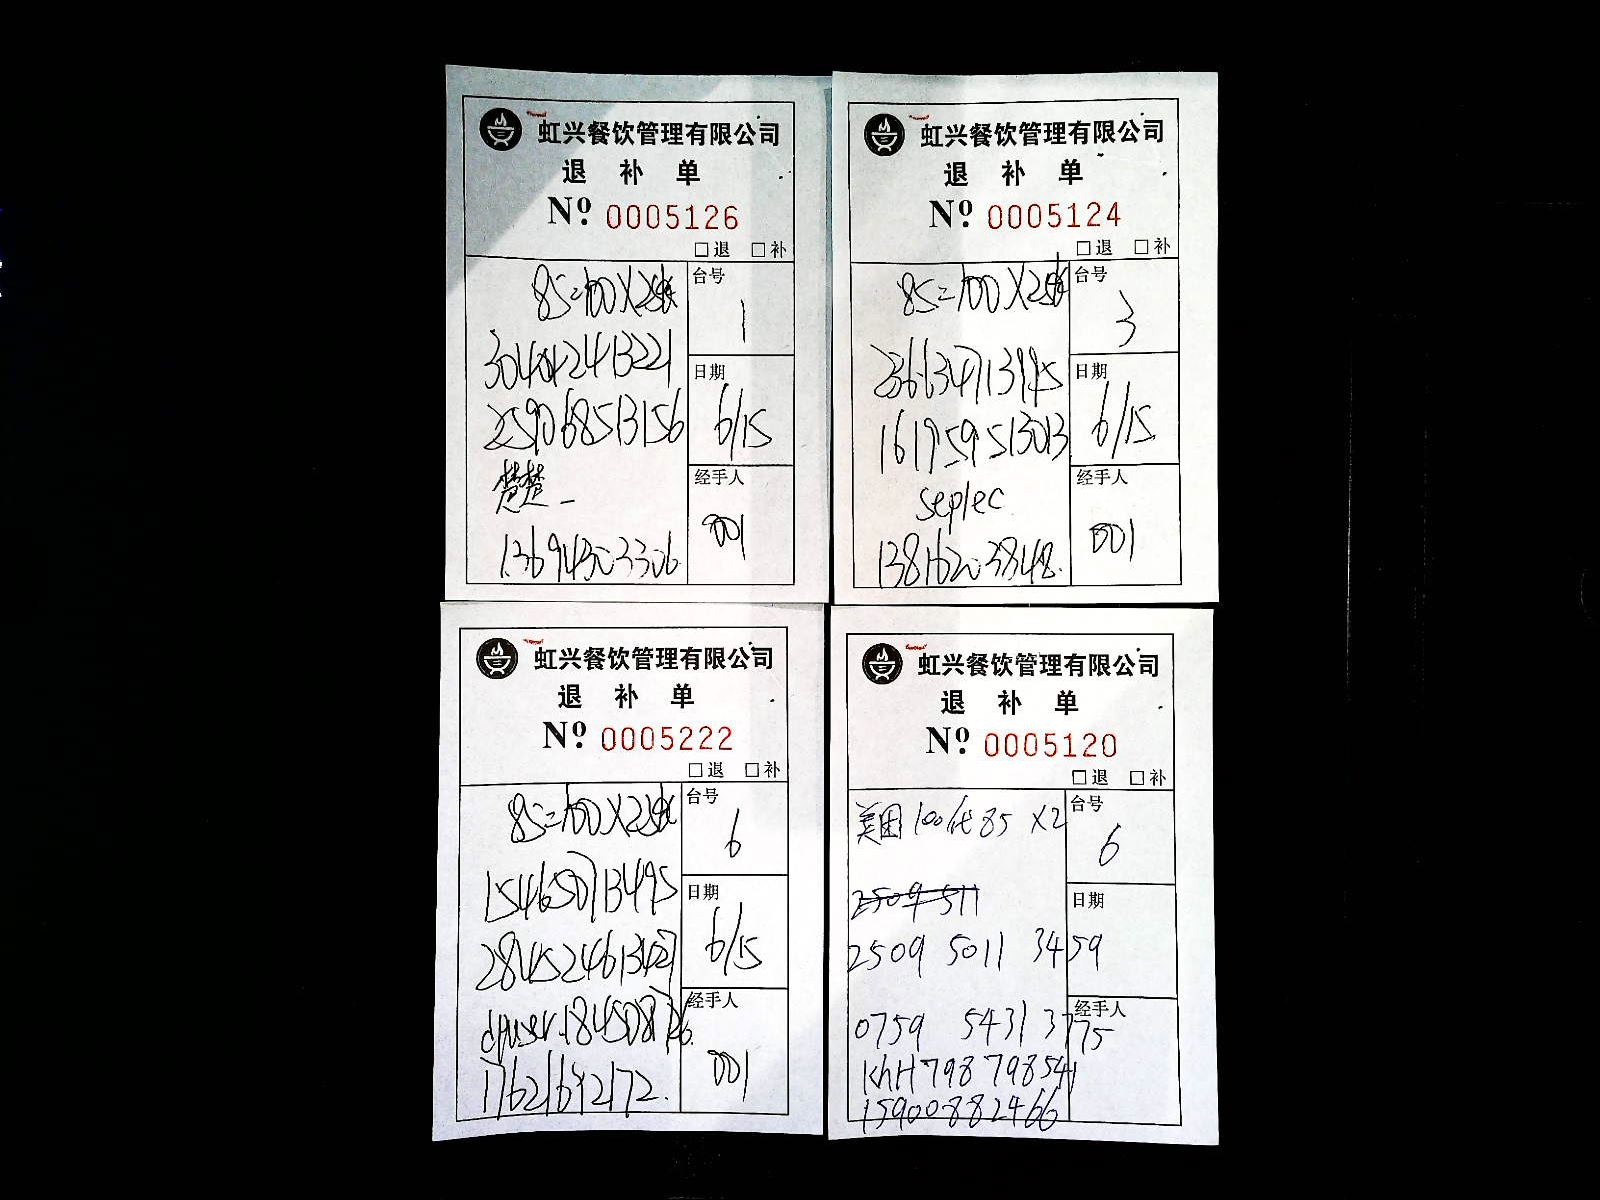 虹兴餐饮管理有限公司
退 补 单
Nº 0005126
□退 □补
85=100X2张
台号
1
304042413221
日期
6/15
259068513156
楚楚
经手人
001
13694303306
虹兴餐饮管理有限公司
退 补 单
Nº 0005124
□退 □补
85=100X2张
台号
3
日期
6/15
161959513013
seplec
经手人
001
13816203848.
虹兴餐饮管理有限公司
退 补 单
Nº 0005222
□退 □补
85=100X2张
台号
6
154650713495
日期
6/15
284524613427
经手人
001
17621642172.
虹兴餐饮管理有限公司
退 补 单
Nº 0005120
□退 □补
美团100代85 X2
台号
6
日期
2509 5011 3459
经手人
0759 5431 3775
KhH798798541
15900882466